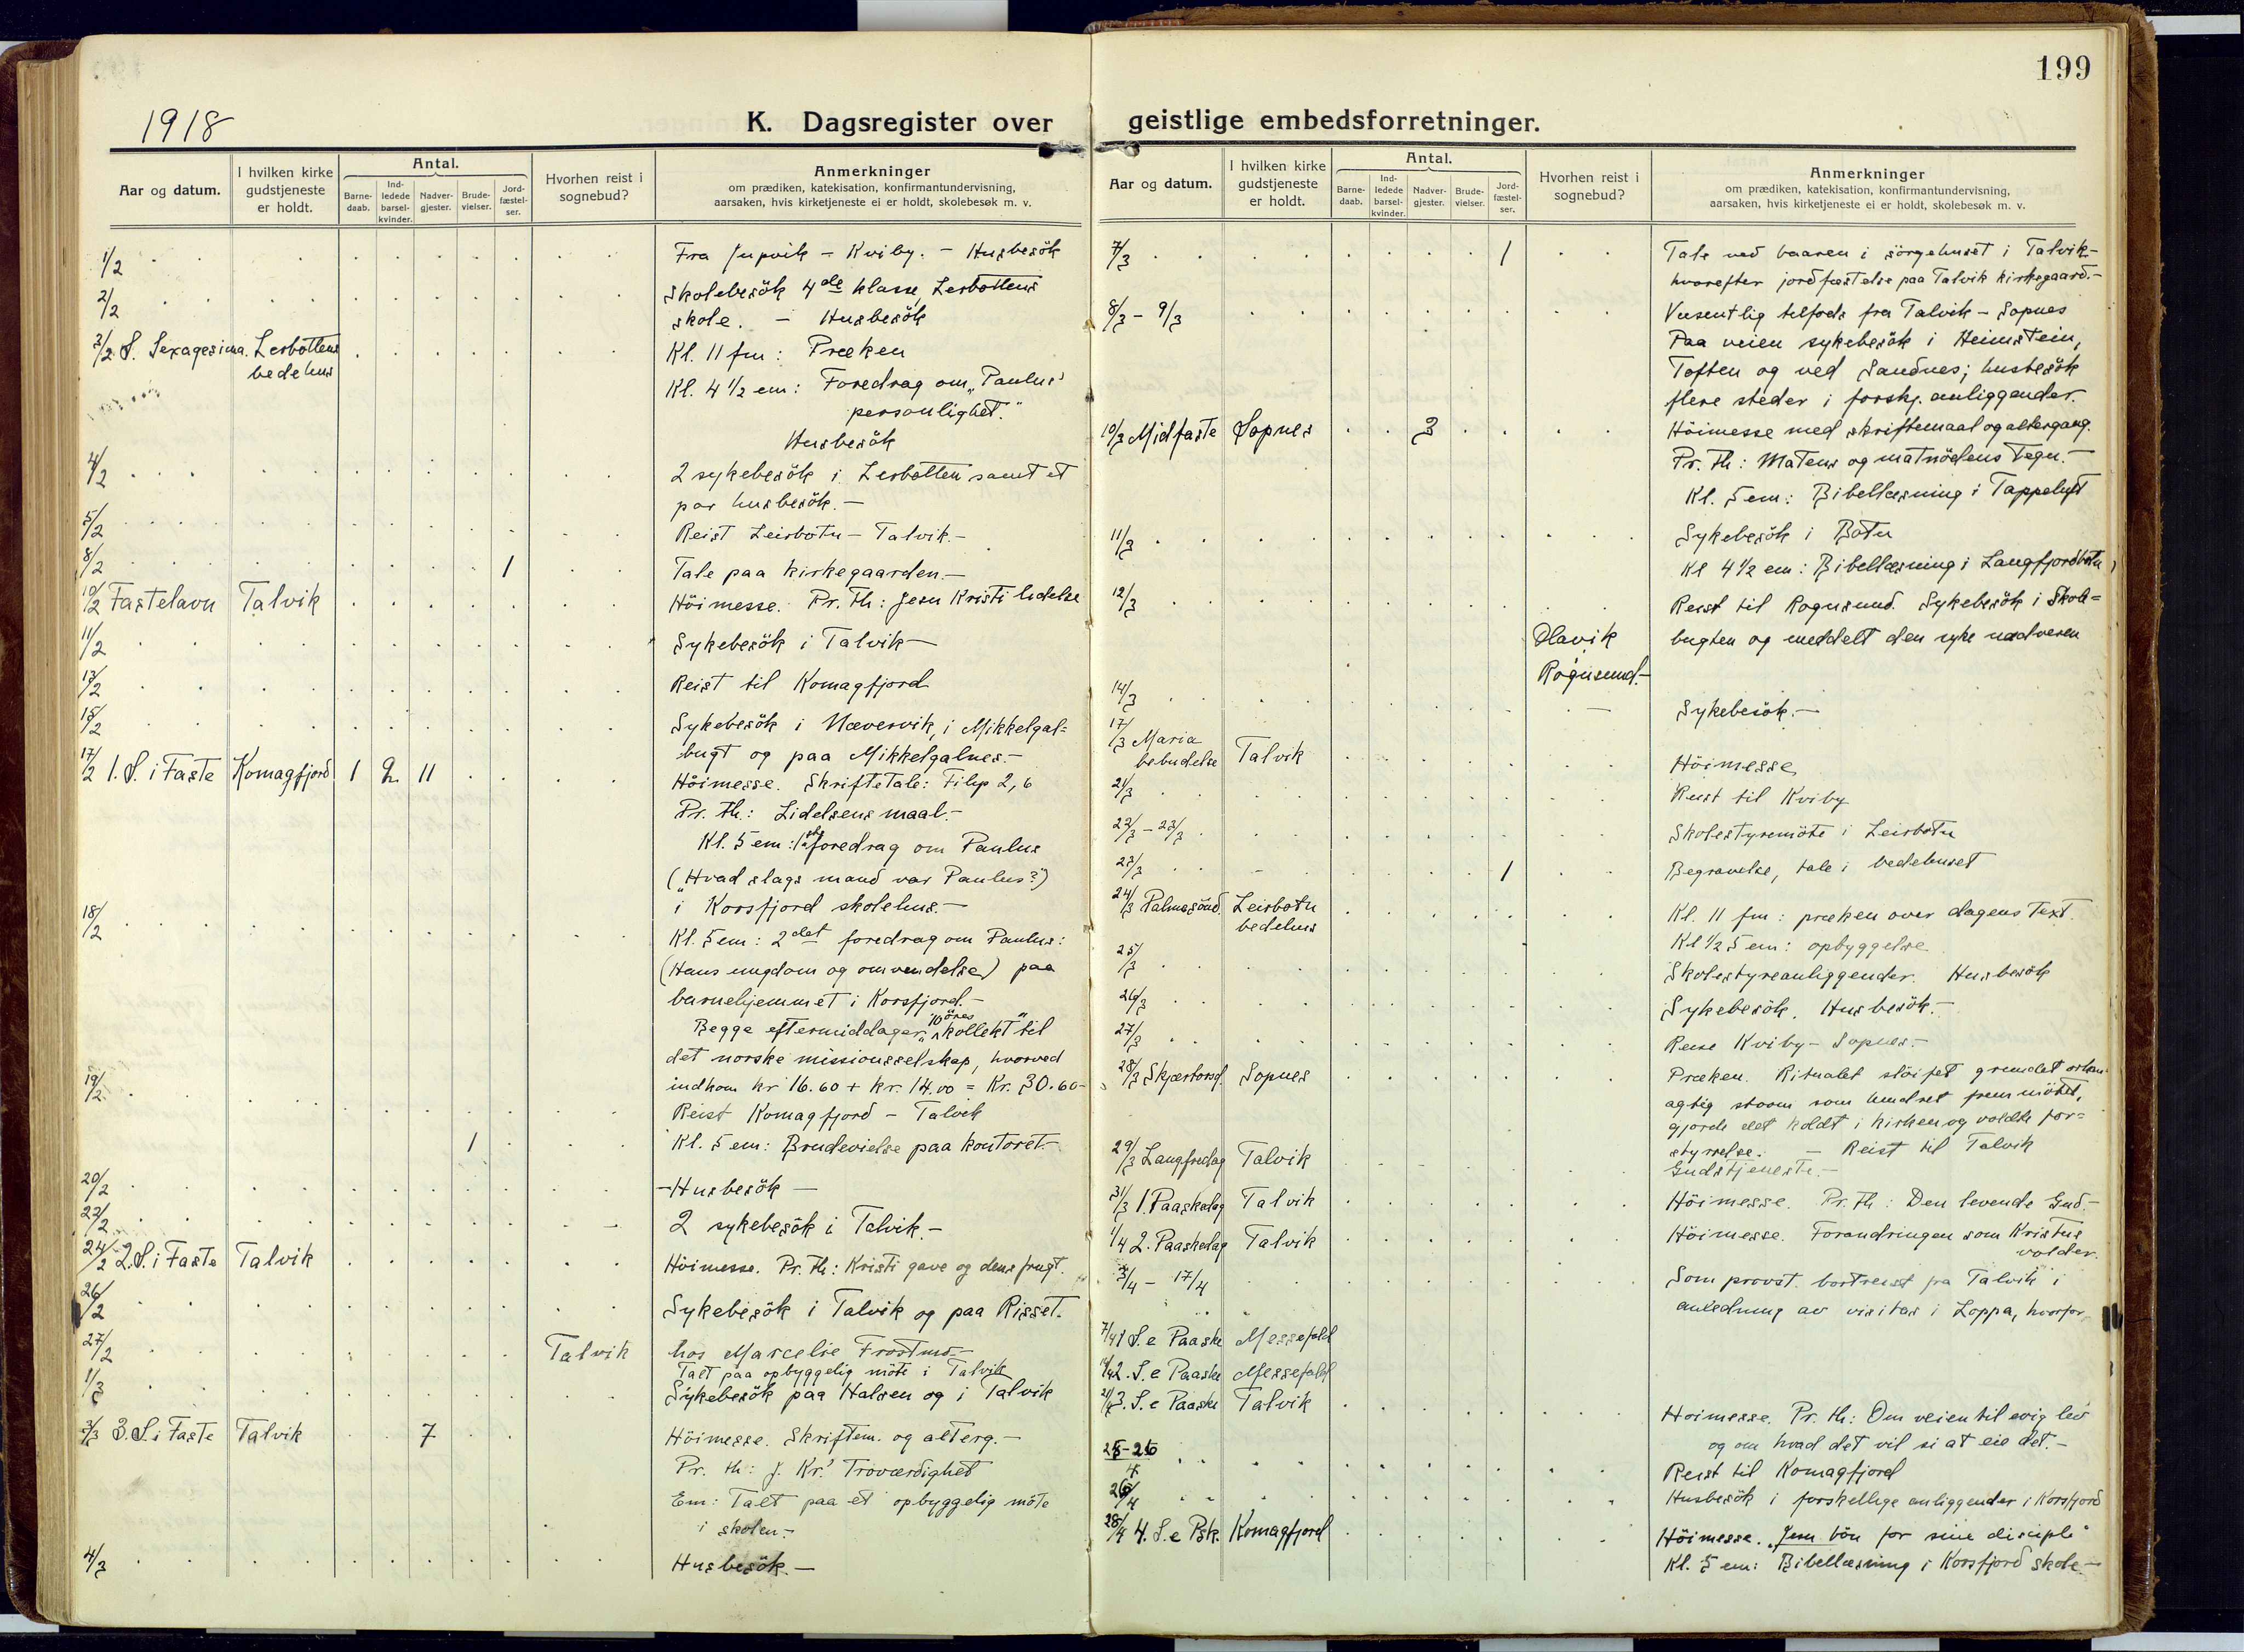 199
1918
K. Dagsregister over geistlige embedsforretninger.
Aar og datum.
I hvilken kirke gudstjeneste er holdt.
Antal.
Barne-daab.
Ind-ledede barsel-kvinder.
Nadver-gjester.
Brude-vielser.
Jord-fæstel-ser.
Hvorhen reist i sognebud?
Anmerkninger
om prædiken, katekisation, konfirmantundervisning,
aarsaken, hvis kirketjeneste ei er holdt, skolebesøk m. v.
1/2 Fra Jupvik - Kviby. - Husbesök
2/2 Skolebesök 4de klasse, Lerbottens
skole. - Husbesök
3/2 S. Sexagesima. Lerbottens bedehus Kl. 11 fm: Præken
Kl. 4 1/2 em: Foredrag om „Paulus'
personlighet."
Husbesök
4/2 2 sykebesök i Lerbotten samt et
par husbesök.-
5/2 Reist Leirbotn - Talvik.-
8/2 1 Tale paa kirkegaarden.-
10/2 Fastelavn Talvik Höimesse. Pr. Th: Jesu Kristi lidelse
11/2 Sykebesök i Talvik-
13/2 Reist til Komagfjord
15/2 Sykebesök i Nævervik, i Mikkelgal=
bugt og paa Mikkelgalnes.-
17/2 1. S. i Faste Komagfjord 1 2 11 Höimesse. Skriftetale: Filip 2,6
Pr. Th.: Lidelsens maal.-
Kl. 5 em: 1ste foredrag om Paulus
(„Hvad slags mand var Paulus?")
i Korsfjord skolehus.-
18/2 Kl. 5 em: 2det foredrag om Paulus:
(Hans ungdom og omvendelse) paa
barnehjemmet i Korsfjord.-
Begge eftermiddager „10 öres kollekt" til
det norske missionsselskap, hvorved
indkom kr 16.60 + kr. 14.00 = Kr. 30.60-
19/2 Reist Komagfjord - Talvik
1 Kl. 5 em: Brudevielse paa kontoret.-
20/2 -Husbesök-
22/2 2 sykebesök i Talvik.-
24/2 2. S. i Faste Talvik Höimesse. Pr. Th: Kristi gave og dens frugt.
26/2 Sykebesök i Talvik og paa Risset.
27/2 Talvik hos Marcelie Frostmo.-
Talt paa opbyggelig möte i Talvik
1/3 Sykebesök paa Halsen og i Talvik
3/3 3. S. i Faste Talvik 7 Höimesse. Skriftem. og alterg.-
Pr. th: J. Kr.' Troværdighet
Em: Talt paa et opbyggelig möte
i skolen.-
4/3 Husbesök.-
Aar og datum.
I hvilken kirke gudstjeneste er holdt.
Antal.
Barne-daab.
Ind-ledede barsel-kvinder.
Nadver-gjester.
Brude-vielser.
Jord-fæstel-ser.
Hvorhen reist i sognebud?
Anmerkninger
om prædiken, katekisation, konfirmantundervisning,
aarsaken, hvis kirketjeneste ei er holdt, skolebesøk m. v.
7/3 1 Tale ved baaren i sörgehuset i Talvik-
hvorefter jordfæstelse paa Talvik kirkegaard.-
8/3 - 9/3 fra Talvik - Sopnes
Paa veien sykebesök i Heimstein,
Toften og ved Sandnes; husbesök
flere steder i forskj. anliggender.
10/3 Midfaste Sopnes 3 Höimesse med skriftemaal og altergang.
Pr. Th: Matens og matnödens tegn.-
Kl. 5 em: Bibellæsning i Tappeluft
11/3 Sykebesök i Botn
Kl 4 1/2 em: Bibellæsning i Langfjordbotn
12/3 Reist til Rognsund. Sykebesök i Skole=
Olavik bugten og meddelt den syke nadveren
Rognsund.-
14/3 - Sykebesök.-
17/3 Maria bebudelse Talvik Höimesse
21/3 Reist til Kviby
22/3 - 23/3 Skolestyremöte i Leirbotn
23/3 1 Begravelse, tale i bedehuset
24/3 Palmesönd. Leirbotn bedehus Kl. 11 fm: præken over dagens Text.
Kl 1/2 5 em: opbyggelse
25/3 Skolestyreanliggender. Husbesök
26/3 Sykebesök. Husbesök.-
27/3 Reise Kviby - Sopnes.-
28/3 Skjærtorsd. Sopnes Præken. Ritualet slöifet grundet orkan-
agtig storm som hindret fremmötet,
gjorde det koldt i kirken og voldte for=
styrrelse. - Reist til Talvik
29/3 Langfredag Talvik Gudstjeneste.-
31/3 1. Paaskedag Talvik Höimesse. Pr. Th: Den levende Gud.-
1/4 2. Paaskedag Talvik Höimesse. Forandringen som Kristus
volder.
3/4 - 17/4 Som provst bortreist fra Talvik i
anledning av visitas i Loppa, hvorfor
7/4 1 S. e Paaske Messefald
14/4 2. S. e Paaske Messefald
21/4 3. S. e Paaske Talvik Höimesse. Pr. th: Om veien til evig liv
og om hvad det vil si at eie det.-
25-26/4 Reist til Komagfjord
26/4 Husbesök i forskellige anliggender i Korsfjord
28/4 4. S. e Psk. Komagfjord Höimesse. „Jesu bön for sine disciple"
Kl. 5 em: Bibellæsning i Korsfjord skole-